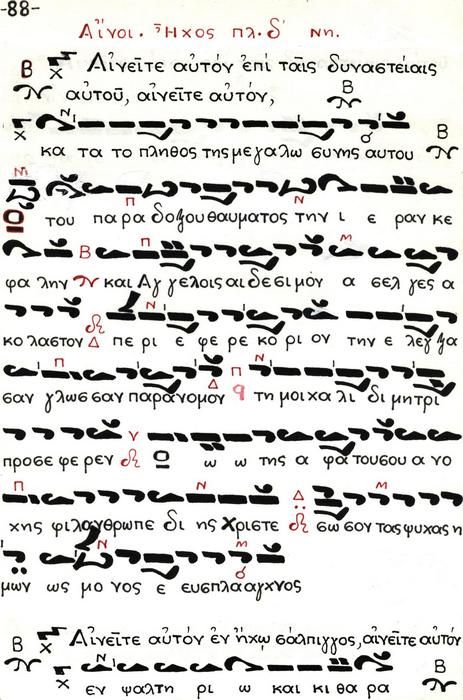 -88-
Αἶνοι. Ἦχος πλ. δ´ νη.
Β Αἰνεῖτε αὐτόν ἐπί ταῖς δυναστείαις
αὐτοῦ, αἰνεῖτε αὐτόν, Β
Ν
κα τα το πληθος της με γα λω συνης αυτου Β
Μ Π Ν
του πα ρα δοξου θαυματος την ι ε ραν κε
Β Π Μ
φα λην και Αγ γελοις αι δε σι μον α σελ γες α
Ν
κο λαστον Δ πε ρι ε φε ρε κο ρι ον την ε λεγ ξα
Π Δ Π Ν
σαν γλωσ σαν παρανομον τη μοι χα λι δι μητρι
Ν
προσε φε ρεν ω ω της α φα του σου α νο
Π Ν Δ Μ
χης φιλανθρωπε δι ης Χριστε σω σον τας ψυχας η
Ν Μ
μων ως μο νος ε ευσπλααγχνος
Β Αἰνεῖτε αὐτόν ἐν ἤχῳ σάλπιγγος, αἰνεῖτε αὐτόν
Ν Β
εν ψαλτη ρι ω και κι θα ρα